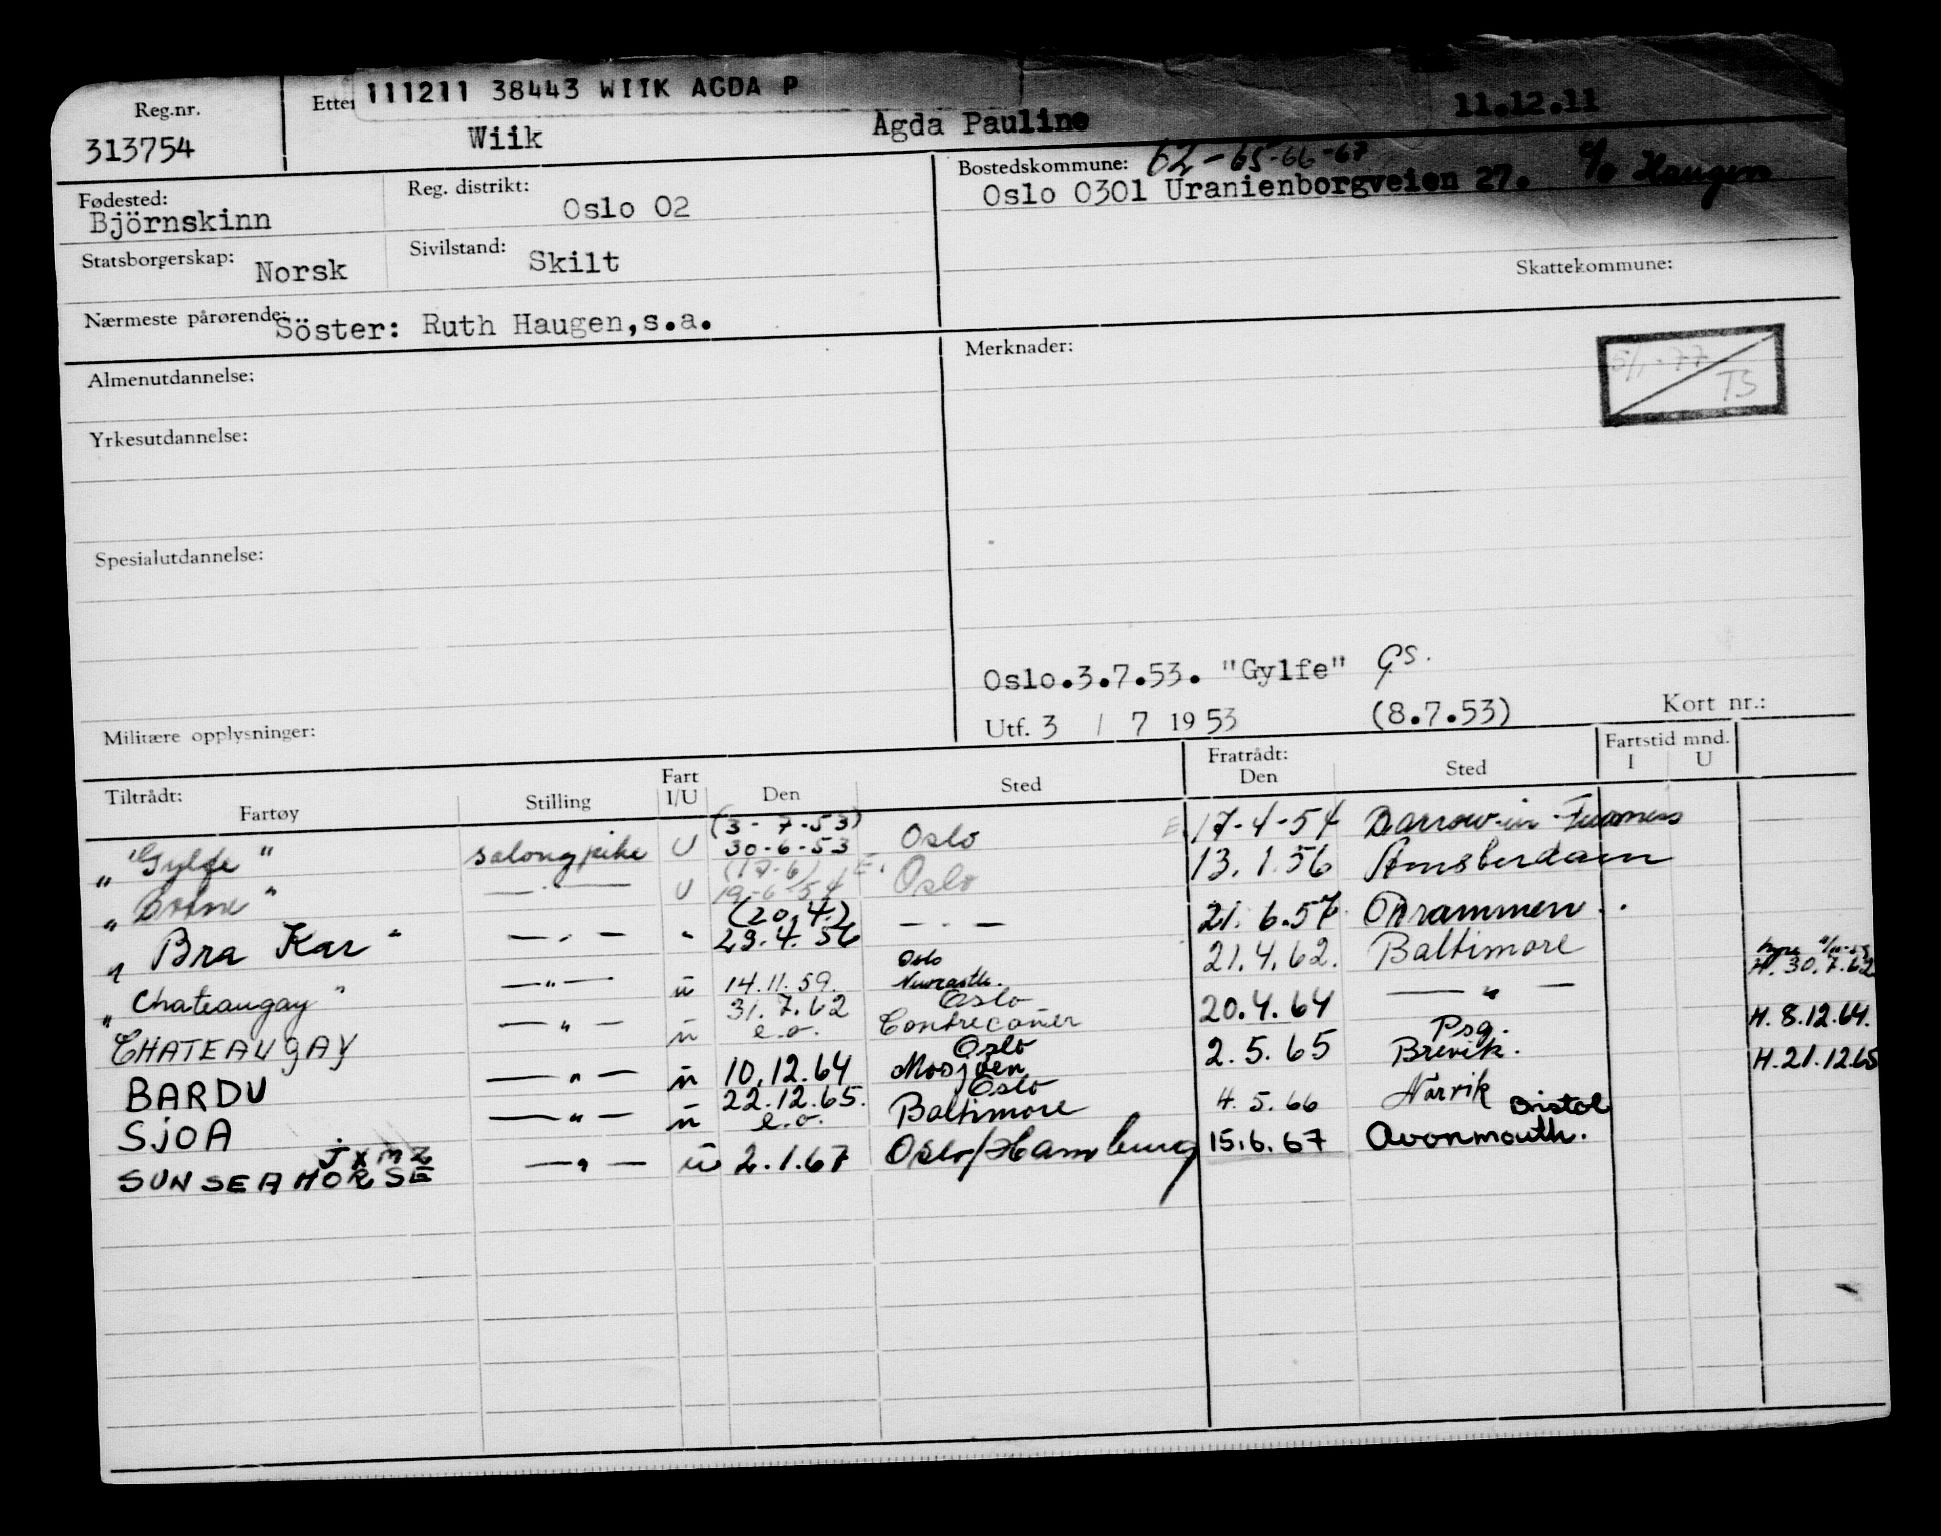 111211 38443 WIIK AGDA P
Reg.nr. 313754
Wiik Agda Pauline 11.12.11
Fødested: Björnskinn
Reg. distrikt: Oslo 02
Bostedskommune: 62-65-66-67
Oslo 0301 Uranienborgveien 27. c/o Haugen
Statsborgerskap: Norsk
Sivilstand: Skilt
Skattekommune:
Nærmeste pårørende: Söster: Ruth Haugen,s.a.
Almenutdannelse:
Merknader:
5/1-77
TS
Yrkesutdannelse:
Spesialutdannelse:
Oslo.3.7.53. "Gylfe" GS.
Militære opplysninger:
Utf. 3 / 7 1953 (8.7.53) Kort nr.:
Tiltrådt: Fratrådt: Fartstid mnd.
Fartøy Stilling Fart I/U Den Sted Den Sted I U
(3-7-53)
„Gylfe" salongpike U 30-6-53 Oslo 17-4-54 Barrow-in-Furness
(17-6)
„ " — " — U 19-6-54 Oslo 13.1.56 Amsterdam
(20.4.)
„ Bra Kar " — " — " 29.4.56 — " — 21.6.57 Drammen
Oslo
„ Chateaugay " — " — u 14.11.59. Newcastle. 21.4.62. Baltimore H. 30.7.62
31.7.62 Oslo
CHATEAUGAY — " — u e.o. Contrecoeur 20.4.64 — " — H. 8.12.64.
Oslo Psg.
BARDU — " — u 10.12.64 Mosjøen 2.5.65 Brevik. H.21.12.65
22.12.65. Oslo
SJOA — " — u e.o. Baltimore 4.5.66 Narvik
JXMZ Bristol
SUNSEAHORSE — " — u 2.1.67 Oslo/Hamburg 15.6.67 Avonmouth.